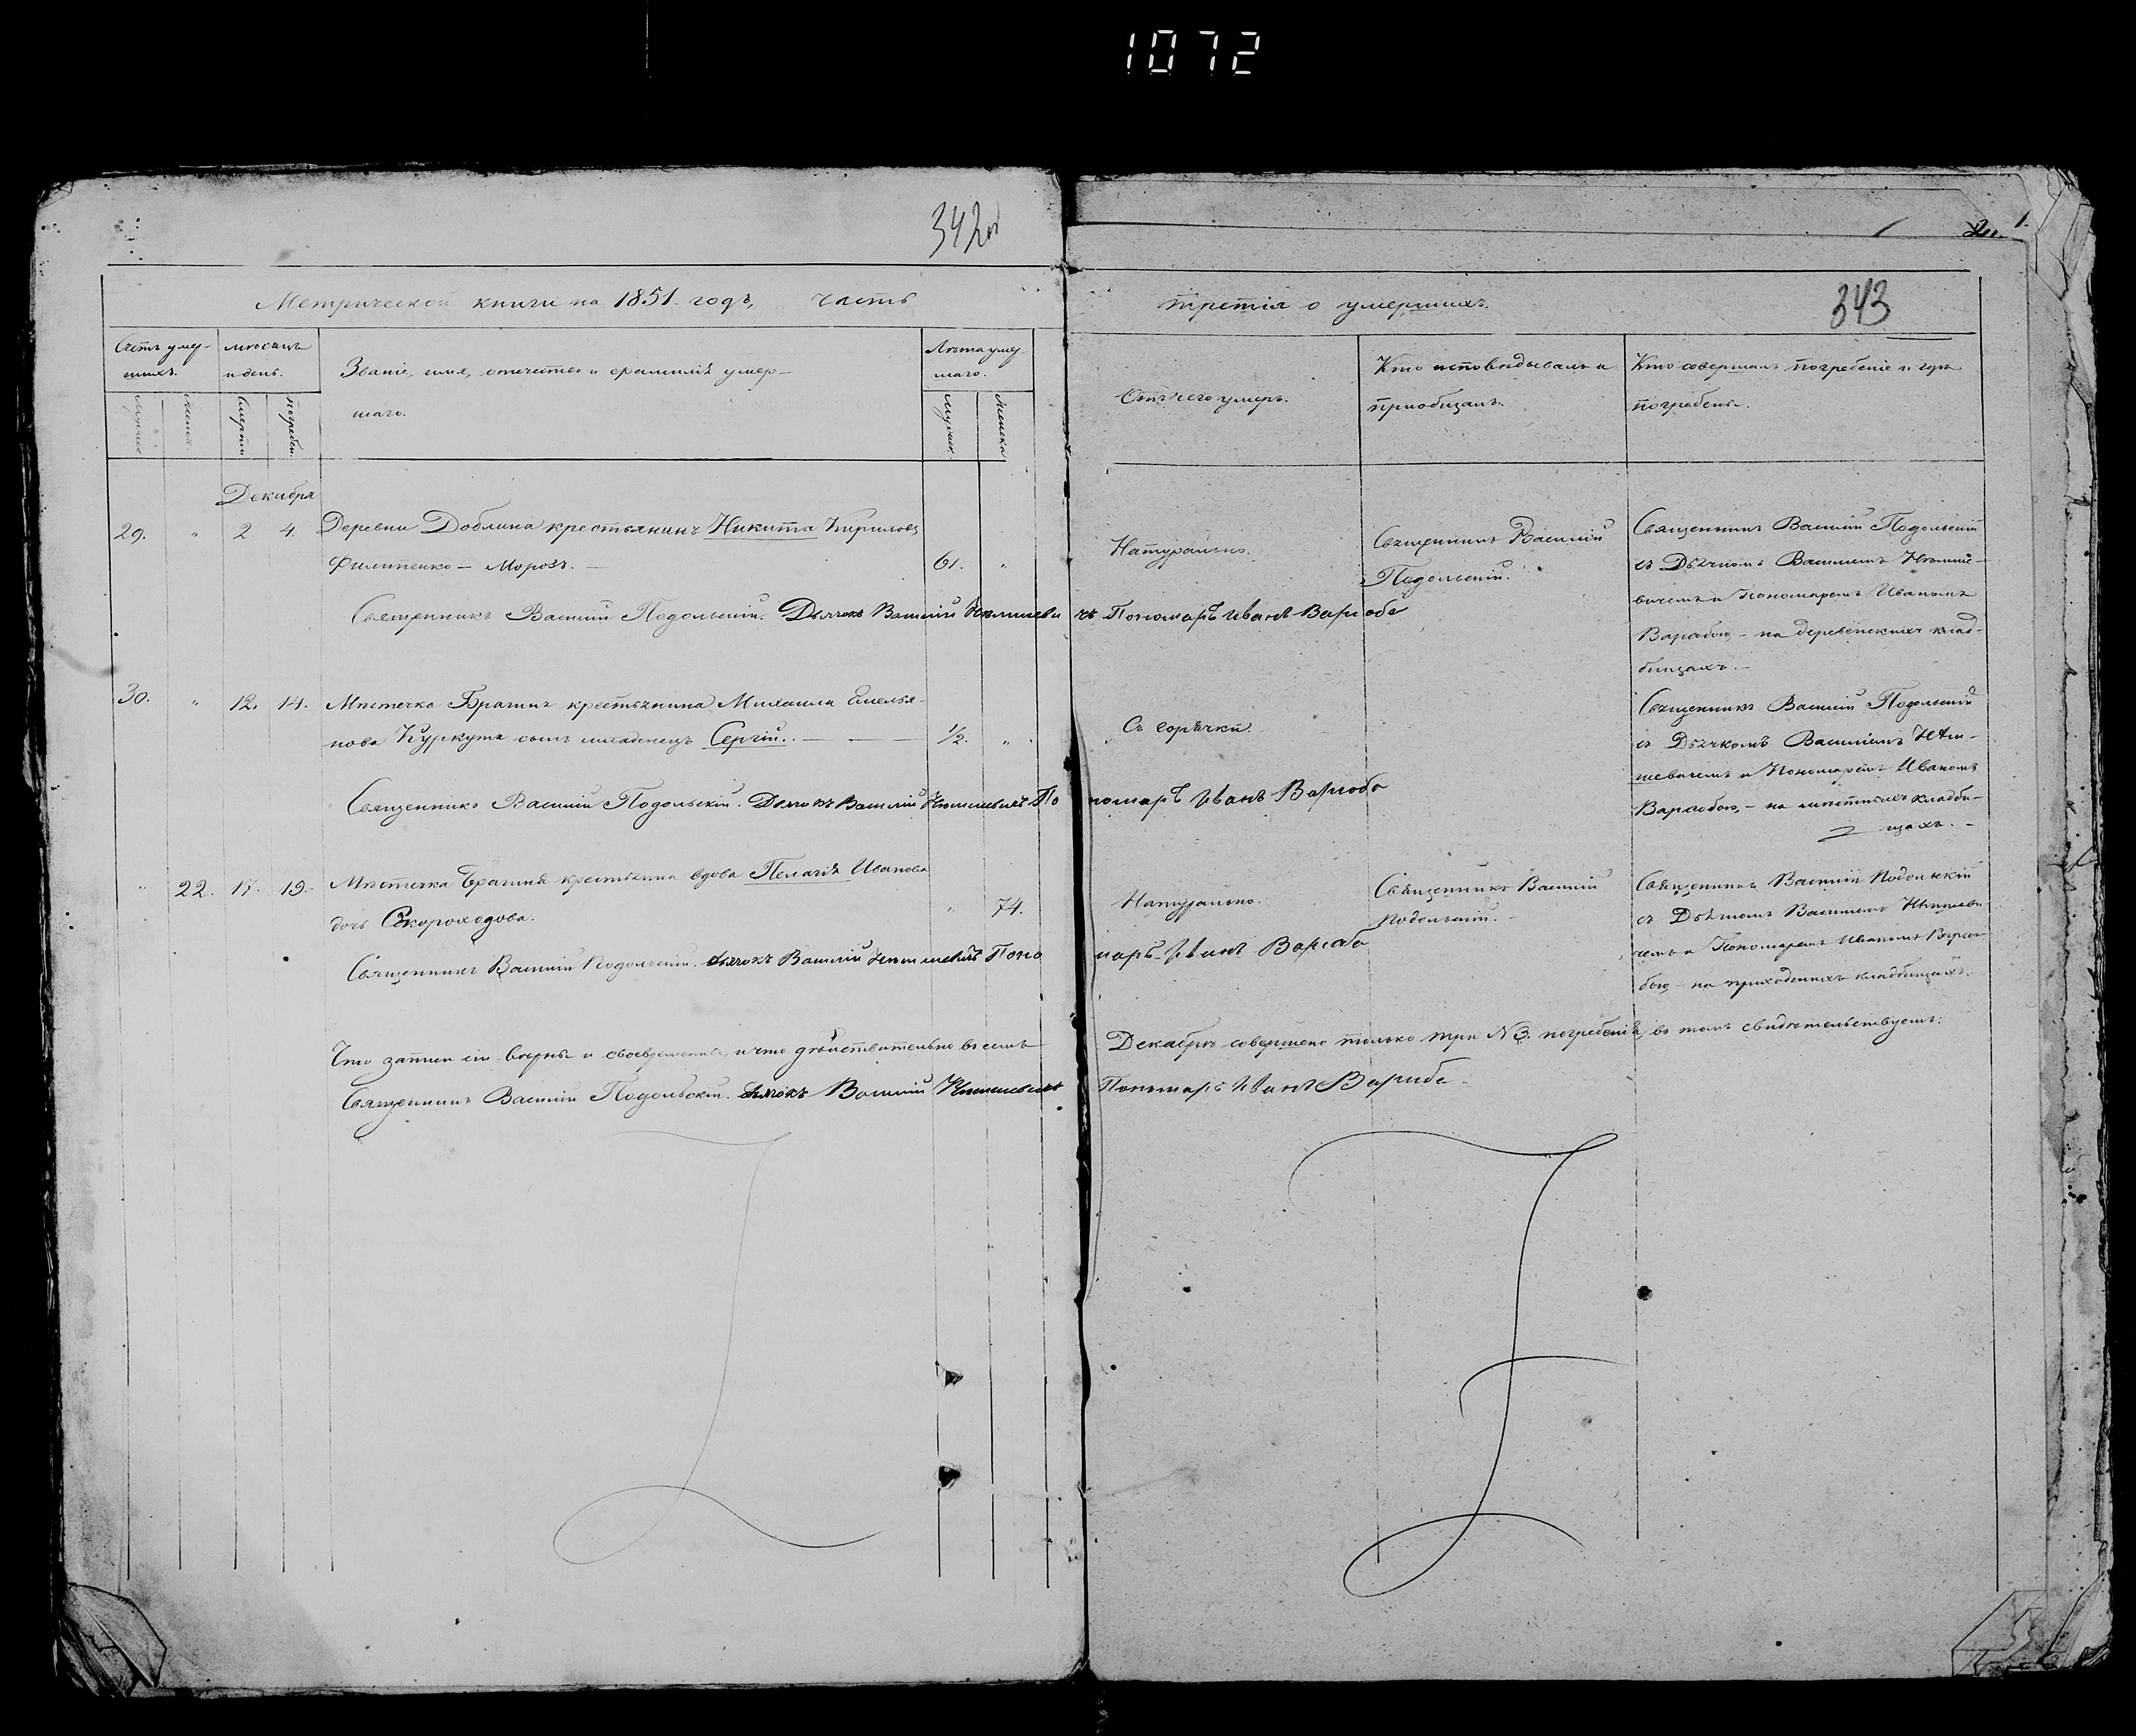 1072
342об
343
Метрической книги на 1851. годъ, часть
третія о умершихъ.
Счетъ умер-
шихъ.
мѣсяцъ
и день.
Званіе, имя, отчество и фамилія умер-
шаго.
Лѣта умер-
шаго.
Отъ чего умеръ.
Кто исповѣдывалъ и
приобщалъ.
Кто совершалъ погребеніе и гдѣ
погребены.
Мужеск.
Женск.
Смерти
погребен.
Мужеск.
Женска
Декабря
29. " 2 4. Деревни Доблина крестьянинъ Никита Кириловъ
Филипенко — Морозъ. — 61. "
Натурально.
Священникъ Василій
Подольскій.
Священникъ Василій Подольскій
съ Дьячкомъ Василіемъ
вичемъ и Пономаремъ Иваномъ
Варивбою, — на деревенскихъ клад-
бищахъ. —
Священникъ Василій Подольскій. Дьячокъ Василій
Пономарь Иванъ
30. " 12. 14. Мѣстечка Брагинъ крестьянина Михаила Емелья-
нова Куркута сынъ младенецъ Сергій. — — 1/2. "
Съ горячки.
Священникъ Василій Подольскій
съ Дьячкомъ Василіемъ
шевичемъ и Пономаремъ Иваномъ
на мѣстныхъ кладби-
щахъ. —
Священникъ Василій Подольскій. Дьячокъ Василій По
номарь Иванъ
" 22. 17. 19. Мѣстечка Брагиня крестьянина вдова Пелагія Иванова
дочь Скороходова. " 74.
Натурально.
Священникъ Василій
Подольскій. —
Священникъ Василій Подольскій
съ Дьячкомъ Василіемъ
чемъ и Пономаремъ Иваномъ
бою, на приходскихъ кладбищахъ.
Священникъ Василій Подольскій. Дьячокъ Василій Поно
марь Иванъ
Что записи сіи вѣрны и своевременны, и что дѣйствительно въ семъ
Декабрѣ совершено только три № 3. погребенія, въ томъ свидѣтельствуемъ:
Священникъ Василій Подольскій. Дьячокъ Василій
Пономарь Иванъ